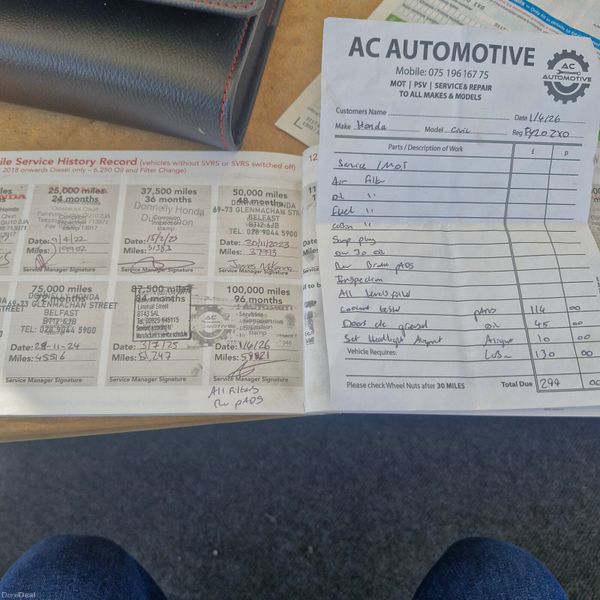 AC AUTOMOTIVE
Mobile: 075 196 167 75
MOT | PSV | SERVICE & REPAIR
TO ALL MAKES & MODELS
AC
AUTOMOTIVE
Customers Name
Date 1/4/26
Make Honda Model Civic Reg
Parts / Description of Work £ p
Service / MOT
Air Filter
oil "
Fuel "
Sump plug
0w 30 oil
Rw Brake pADS
Inspection
All levels filld
Coolant tested pADS 114 00
Door de greasd oil 45 00
Set Headlight Alignment Alignt 10 00
Vehicle Requires: LaBor 130 00
Please check Wheel Nuts after 30 MILES Total Due 299 00
Service History Record (vehicles without SVRS or SVRS switched off)
2018 onwards Diesel only – 6,250 Oil and Filter Change)
12.
25,000 miles
24 months
Date: 7/4/22
Miles: 19902
Service Manager Signature
37,500 miles
36 months
Donnelly Honda
Dungannon
Date: 15/2/23
Miles: 31383
Service Manager Signature
50,000 miles
48 months
69-73 GLENMACHAN STR
BELFAST
BT12 6JB
TEL 028 9044 5900
Date: 30/11/2023
Miles: 37993
Service Manager Signature
75,000 miles
69-73 GLENMACHAN STREET
BELFAST
BT12 6JB
TEL: 028 9044 5900
Date: 28-11-24
Miles: 45516
Service Manager Signature
87,500 miles
84 months
Date: 3/7/25
Miles: 51,247
Service Manager Signature
100,000 miles
96 months
Date: 1/4/26
Miles: 59821
Service Manager Signature
All Filters
Rw pADS
DoneDeal